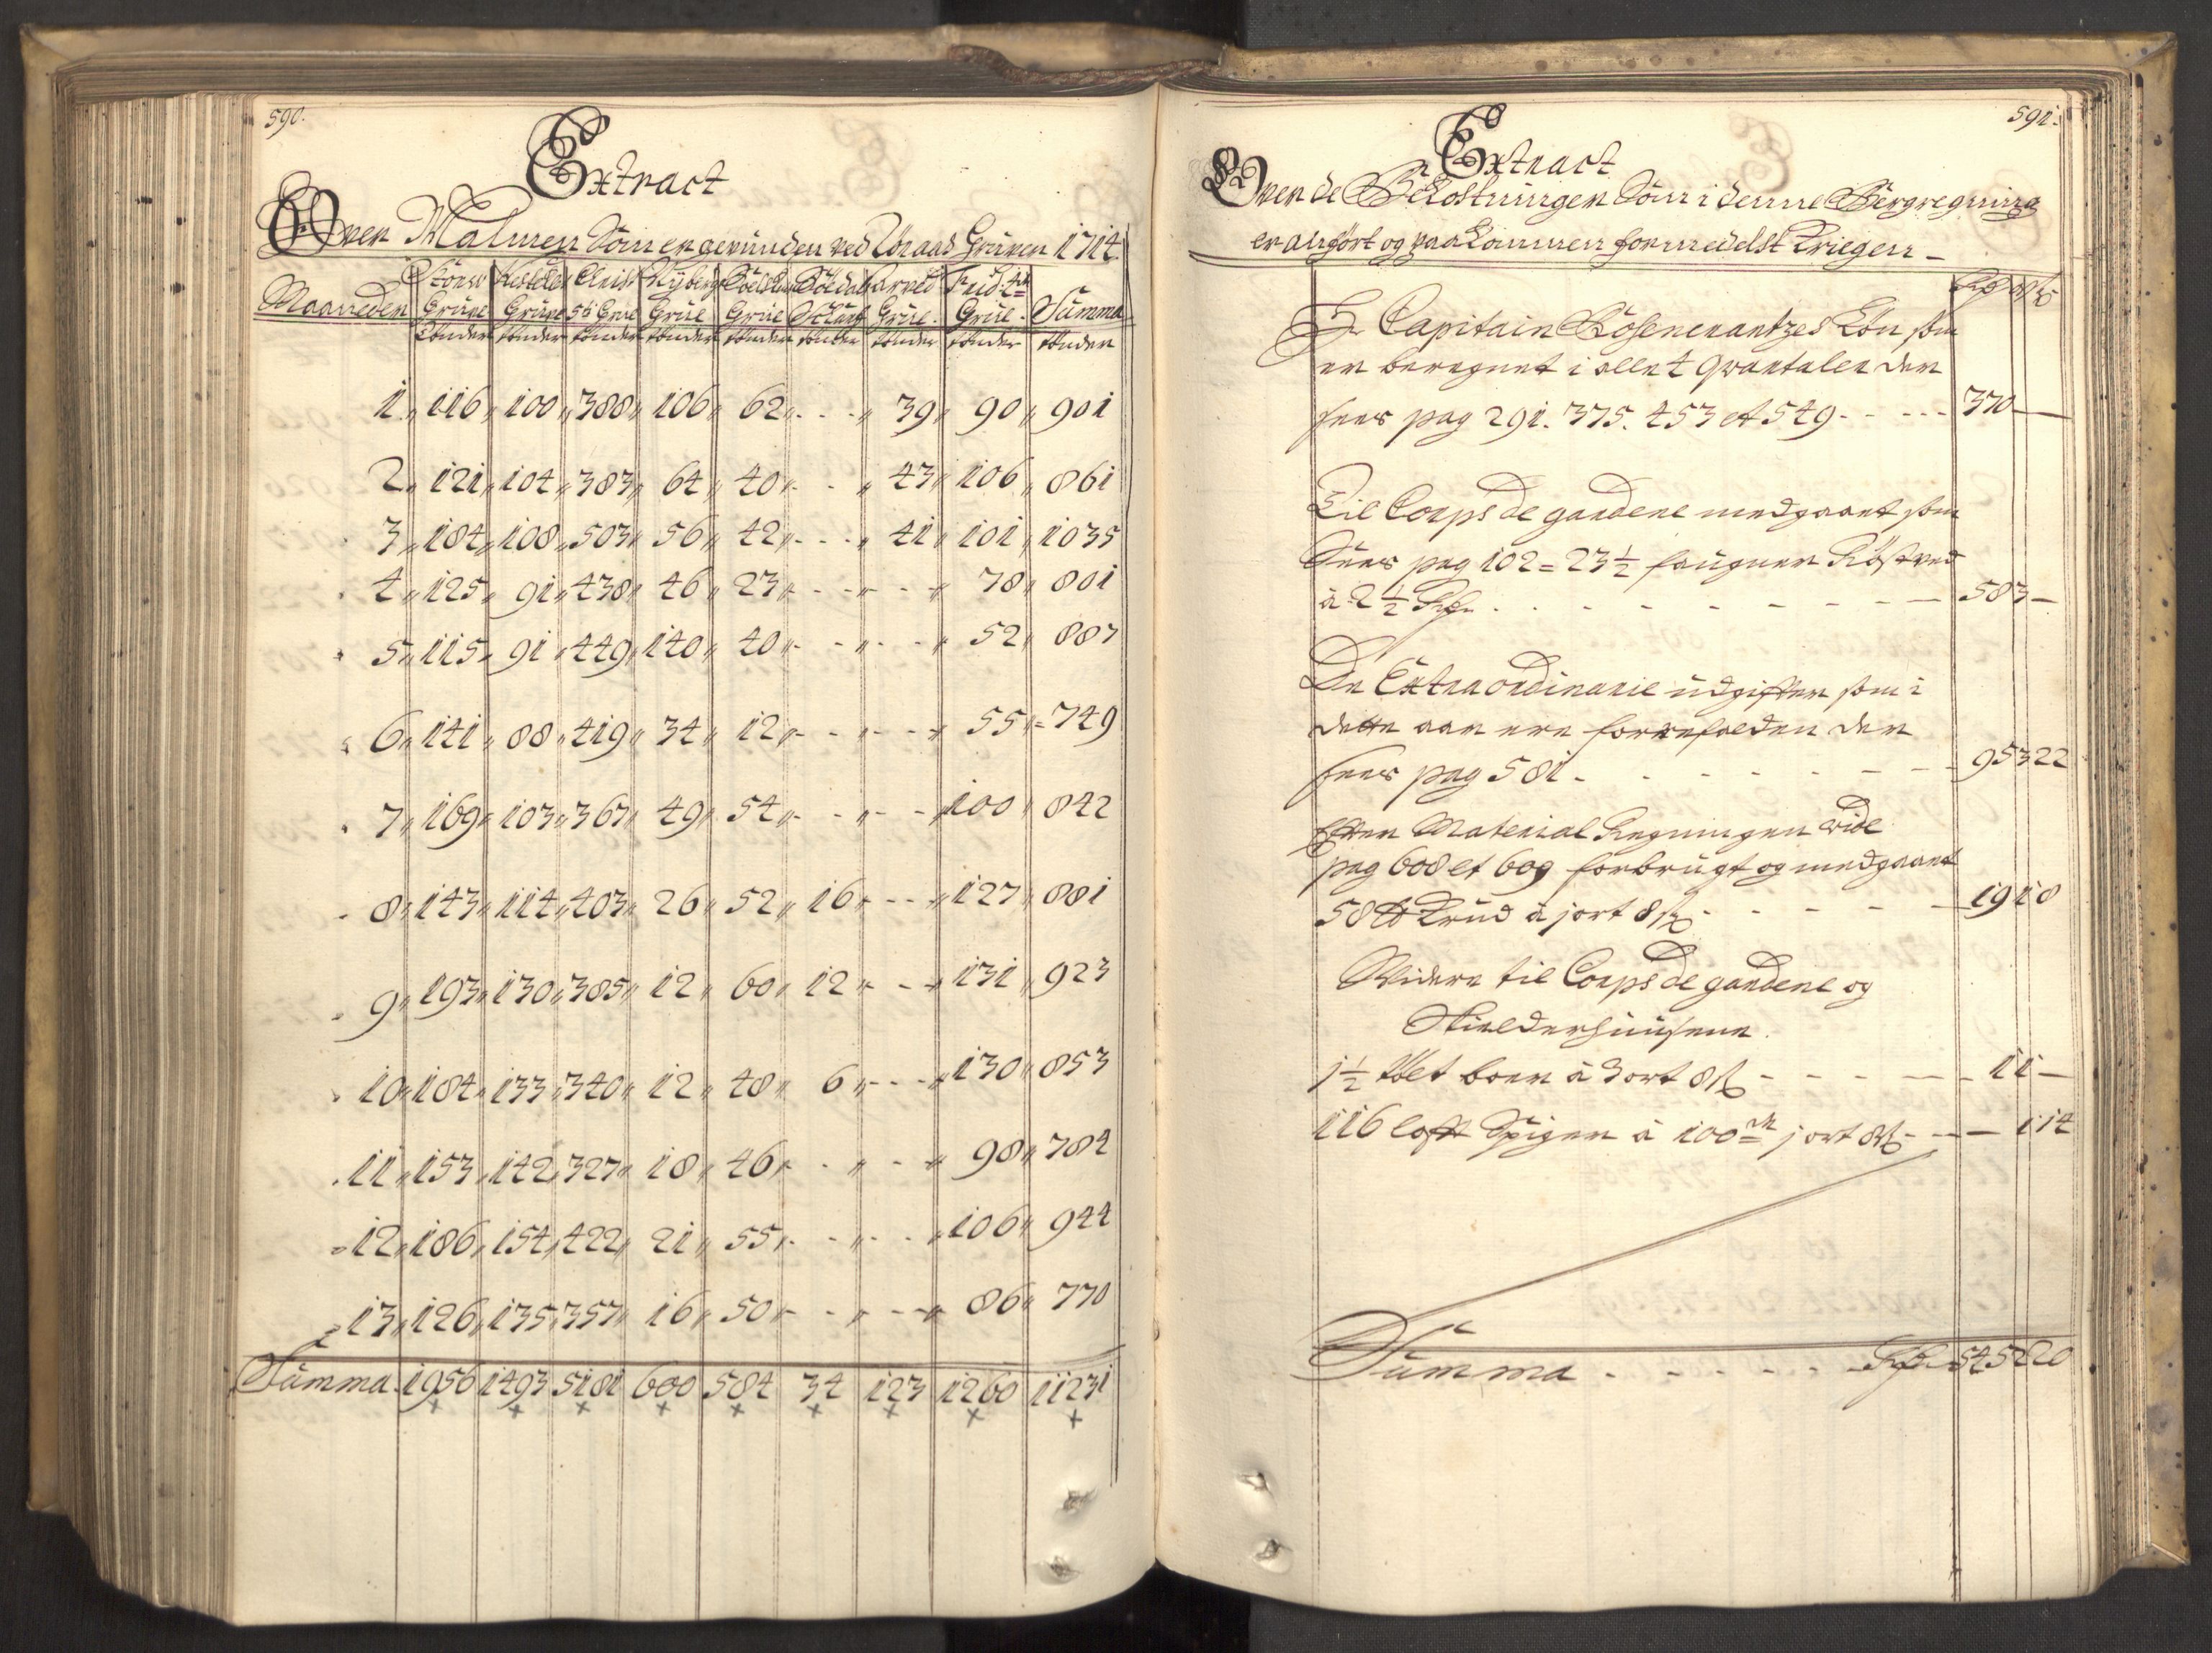 590.
Extract
Over Malmen Som er gevunden ved Røraas Gruver 1714
Maaneder Storws Grüve Tønder Kestelers Grüve tønder Christ: 5ti Grue tønder Nyberge Grüe tønder Grüe tønder tønder Arved Grüe tønder Frid: 4ti Grüe tønder Summa tønder
1 116 100 388 106 62 - - 39 90 901
2 121 104 383 64 40 - - 43 106 861
3 184 108 503 56 42 - - 41 101 1035
4 125 91 438 46 23 - - - - 78 801
5 115 91 449 140 40 - - - - 52 887
6 141 88 419 34 12 - - - - 55 749
7 169 103 367 49 54 - - - - 100 842
8 143 114 403 26 52 16 - - 127 881
9 193 130 385 12 60 12 - - 131 923
10 184 133 340 12 48 6 - - 130 853
11 153 142 327 18 46 - - - - 98 784
12 186 154 422 21 55 - - - - 106 944
13 126 135 357 16 50 - - - - 86 770
Summa 1956 1493 5181 600 584 34 123 1260 11231
591.
Extract
Over de Bekostninger Som i denne Bergregning
er anført og paakommen formedelst Kriegen
Hr Capitain Rosencrantzes Løn som
er beregnet i alle 4 qvartaler der
sees pag 291. 375. 453 et 549 - - - 370 —
Til Corps de gardene medgaaet som
Sees pag 102 = 23 1/2 faugner Røstved
à 2 1/2 Rdr - - - 58 3 —
De Extraordinarie udgifter som i
dette aar ere forrefalden der
sees pag 581 - - - 95 3 22
Efter Material Regningen vide
pag 608 et 609 forbrugt og medgaaet
58 ℔ Krud à 1 ort 8 ß - - - 19 1 8
Videre til Corps de gardene og
Skielderhuusene.
1 1/2 tolt borer à 3 ort 8 ß - - - 1 1 —
116 loft Spiger à 100de 1 ort 8 ß - - - — 1 14
Summa - - - Rdr 545 2 20